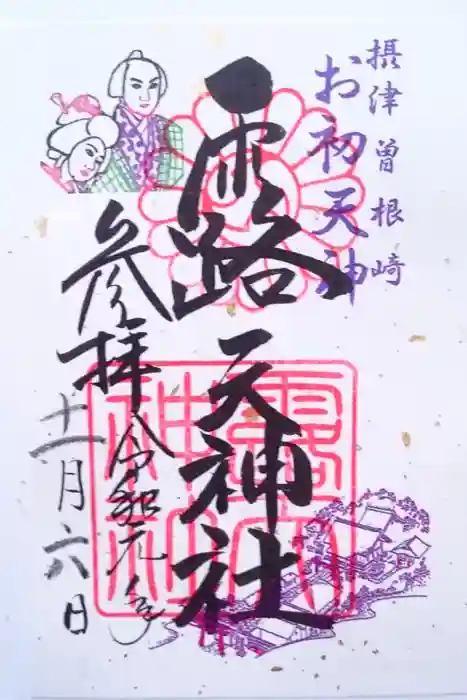 摂津曽根崎
お初天神
露天神社
参拝
令和元年
十一月六日
露天神社